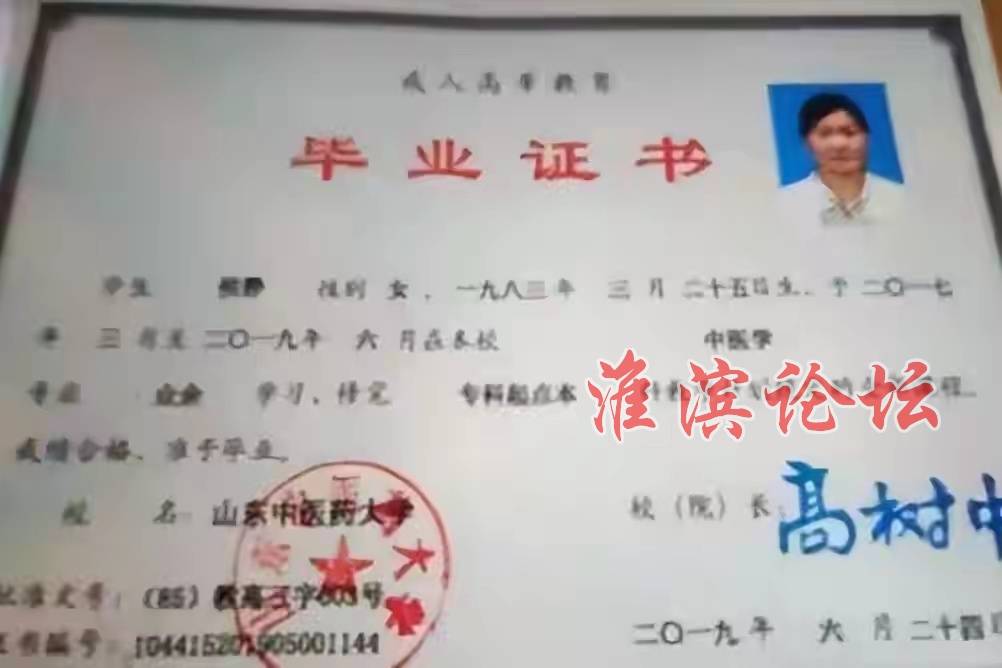 成人高等教育
毕业证书
学生 静 性别 女，一九八三年 三 月 二十五日生，于 二〇一七
年 三 月至 二〇一九年 六 月在本校 中医学
专业 业余 学习，修完 专科起点本
成绩合格，准予毕业。
校 名 山东中医药大学
校（院）长：高树中
批准文号：（85）教高三字003号
证书编号：104415201905001144
二〇一九年 六 月 二十四日
淮滨论坛